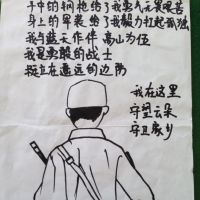 手中的钢枪给了我勇气无畏艰苦
身上的军装给了我毅力扛起孤独
我与蓝天作伴 高山为伍
我是勇敢的战士
挺立在遥远的边防
我在这里
守望云朵
守卫家乡